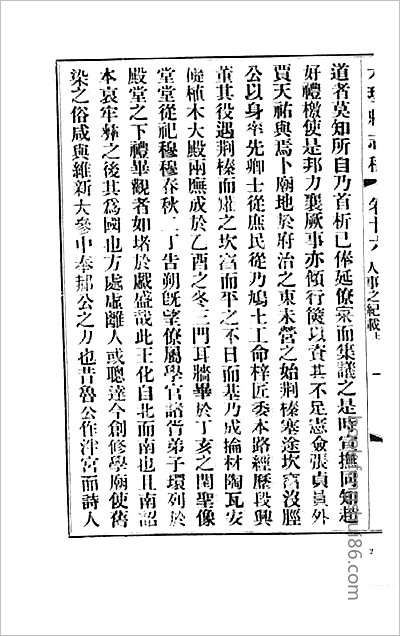 大理縣志稿 卷廿六 人事之紀載上 一
道者莫知所自乃首析己俸延僚寀而集議之是時宣撫同知趙
好禮檄使是邦力襄厥事亦傾行篋以資其不足憲僉張貞員外
賈天祐與焉卜廟地於府治之東未營之始荆榛塞途坎窞沒脛
公以身率先卿士從庶民從乃鳩士工命梓匠委本路經歷段興
董其役遇荆榛而墟之坎窞而平之不日而基乃成掄材陶瓦安
礎植木大殿兩廡成於乙酉之冬三門耳牆畢於丁亥之閏聖像
堂堂從祀穆穆春秋二丁告朔旣望僚屬學官詣菅弟子環列於
殿堂之下禮畢觀者如堵於戲盛哉此王化自北而南也且南詔
本哀牢彝之後其爲國也方處虛離人或聰達今創修學廟使舊
染之俗咸與維新大參中奉郝公之力也昔魯公作泮宮而詩人
2